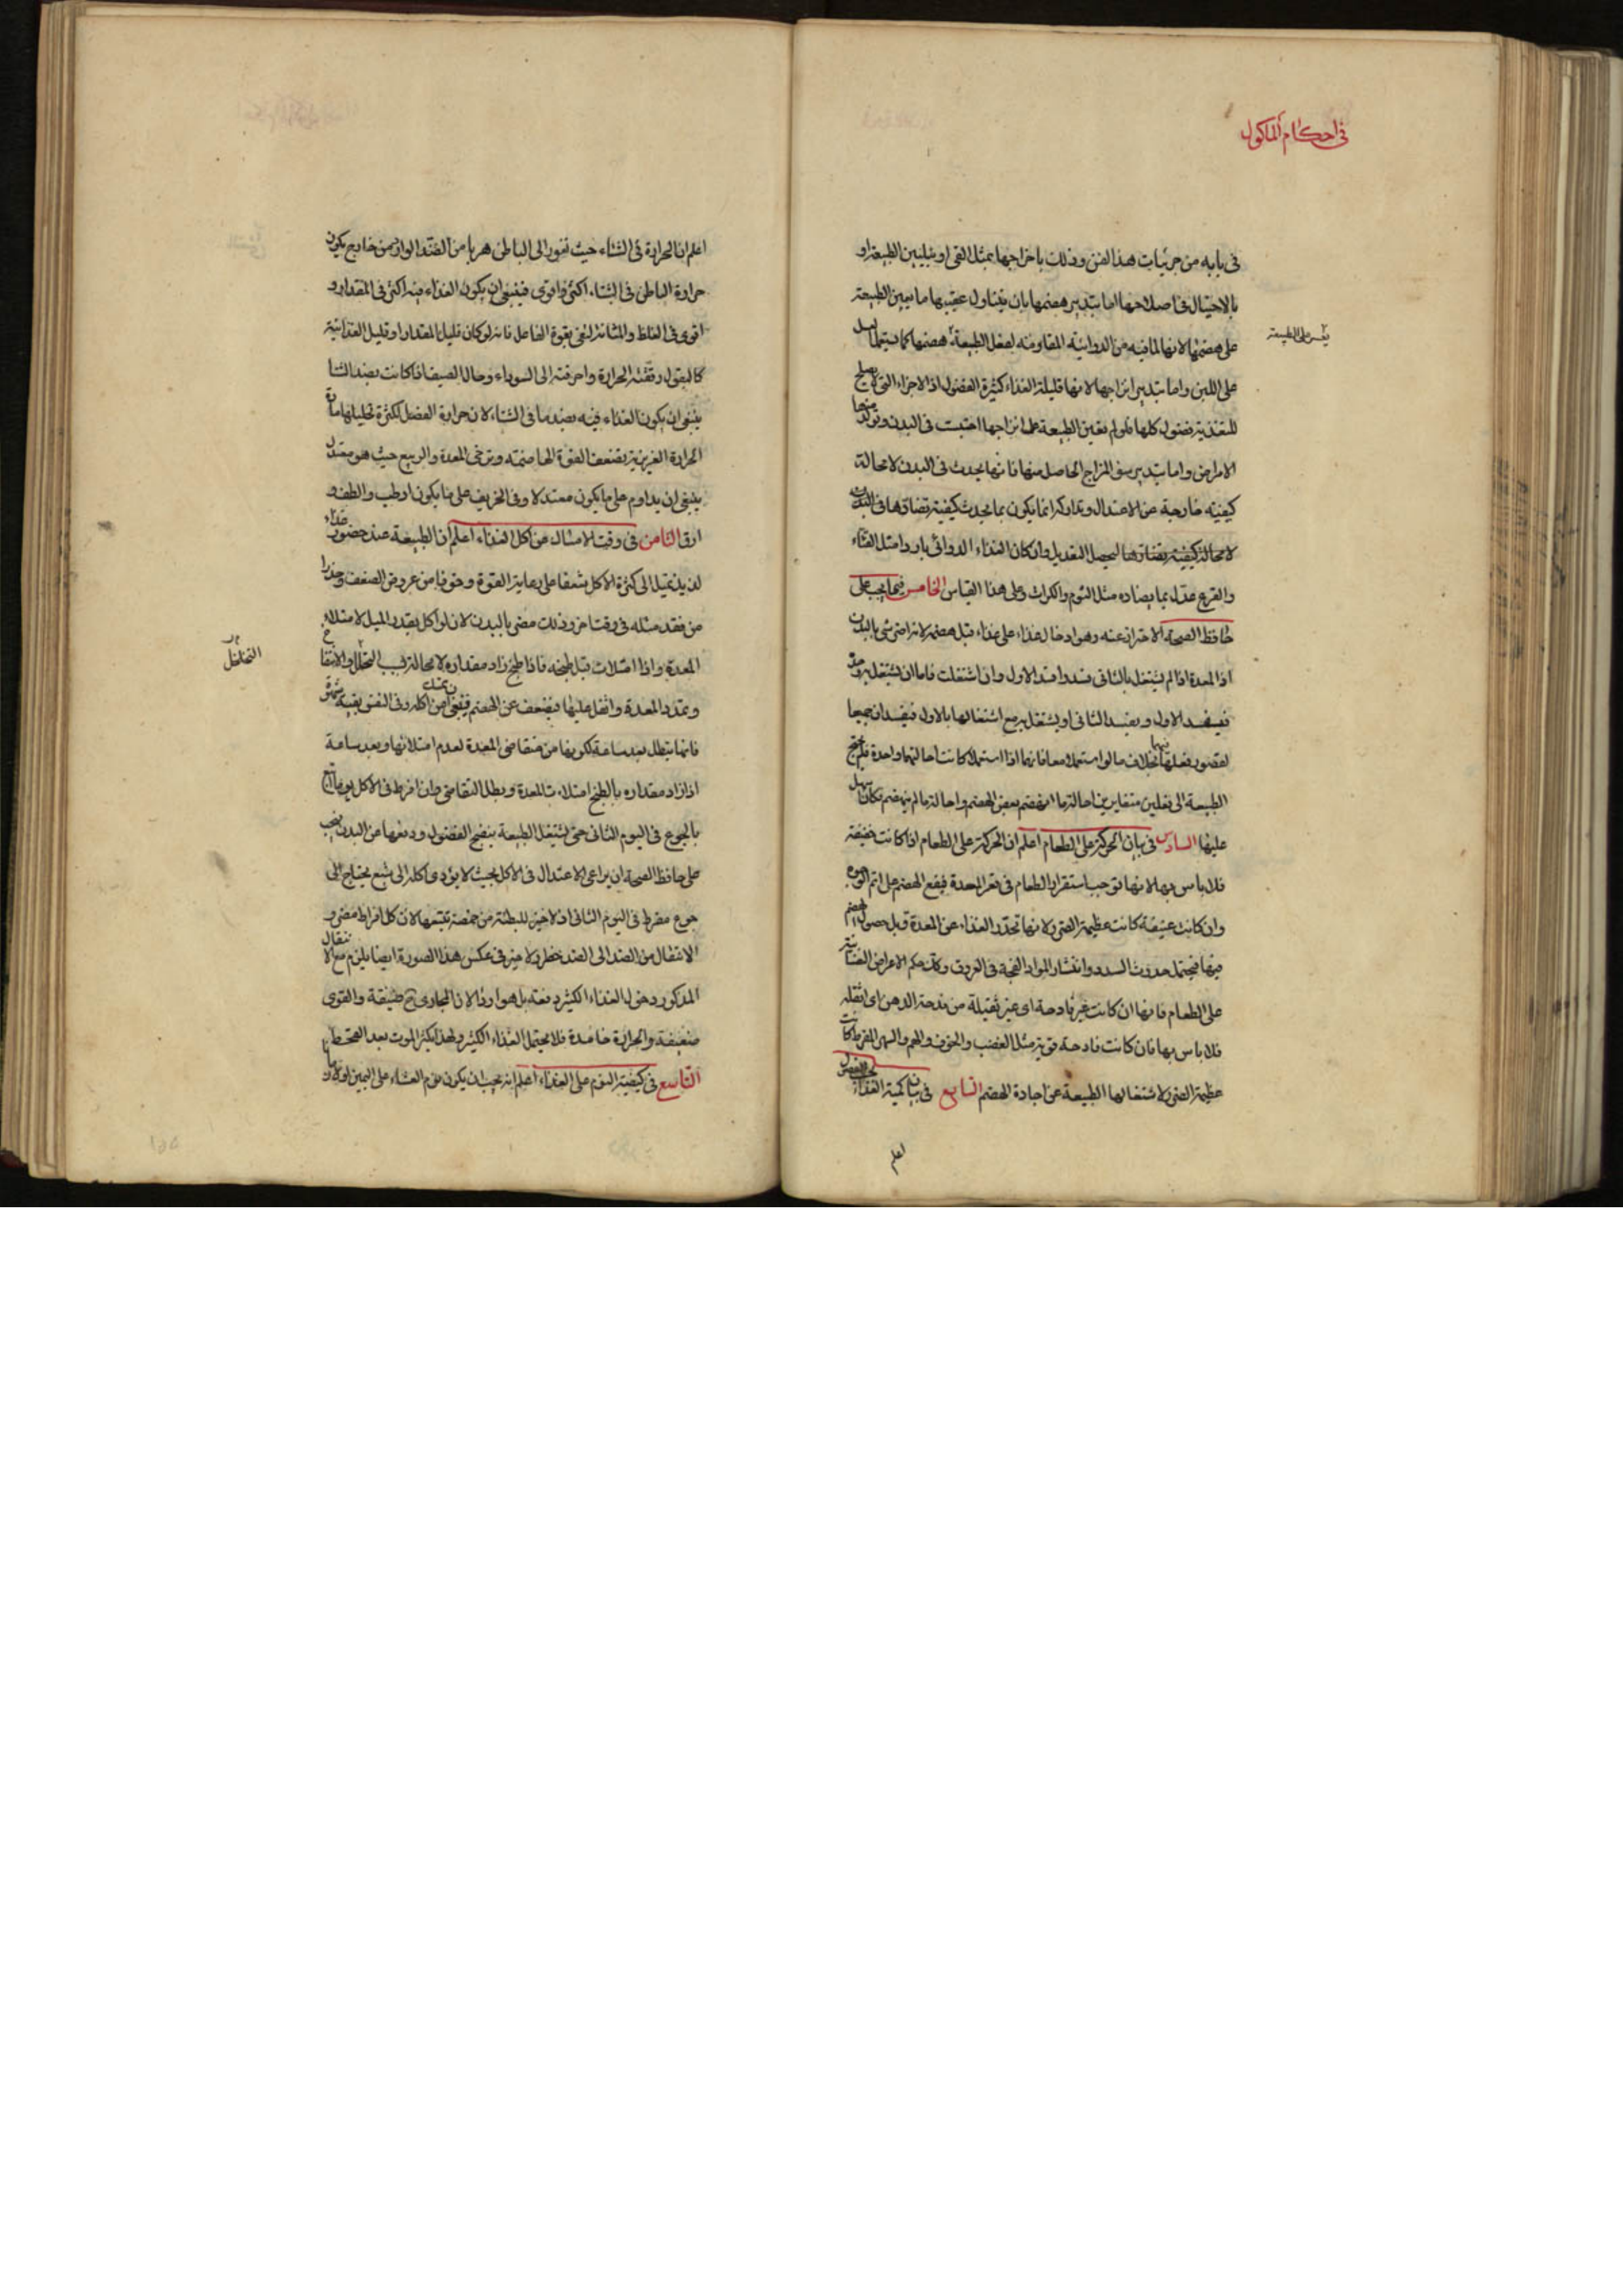 في احكام المأكول
في بابه من جزئيات هذا الفن وذلك باخراجها بمثل القي او بتليين الطبيعة او
بالاحتيال في اصلاحها اما بتدبير هضمها بان يتناول عقيبها ما يعين الطبيعة
على هضمها لانها لما فيه من الدوائية المقاومة لفعل الطبيعة هضمها كما يستعمل العسل
يعسر على الطبيعة
على اللبن واما بتدبير اخراجها لانها قليلة الغذاء كثيرة الفضول اذ الاجزاء التي لا يصلح
للتغذية فضول كلها فلو لم يعين الطبيعة على اخراجها احتبست في البدن وتولد منها
الامراض واما بتدبير سوء المزاج الحاصل منها فانها يحدث في البدن لا محالة
كيفية خارجة عن الاعتدال وتداركه انما يكون بما يحدث كيفية تضادها في البدن
لا محالة كيفية يضادها ليحصل التعديل وان كان الغذاء الدوائي باردا مثل القثاء
والقرع عدل بما يضاده مثل الثوم والكراث وعلى هذا القياس الخامس فيما يجب على
حافظ الصحة الاحتراز عنه وهو ادخال غذاء على غذاء قبل هضمه لانه اضر شي بالبدن
اذ المعدة اذا لم يشتغل بالثاني فسد وافسد الاول وان اشتغلت فاما ان يشتغل به وحده
فيفسد الاول ويفسد الثاني او يشتغل به مع اشتغالها بالاول فيفسدان جميعا
لقصور فعلها فيهما بخلاف ما لو استعملا معا فانهما اذا استعملا كانت احالتهما واحدة فلم يحتج
الطبيعة الى فعلين متغايرين احالة ما انهضم بعض الهضم واحالة ما لم ينهضم فكان اسهل
عليها السادس في بيان الحركة على الطعام اعلم ان الحركة على الطعام اذا كانت خفيفة
فلا باس بها لانها توجب استقرار الطعام في قعر المعدة فيقع الهضم على اتم الوجوه
وان كانت عنيفة كانت عظيمة الضرر لانها تحدر الغذاء عن المعدة قبل حصول الهضم
فيها فيحتمل حدوث السدد وانتشار المواد الفجة في العروق وكذلك حكم الاعراض النفسانية
على الطعام فانها ان كانت غير فادحة اى غير ثقيلة من فدحه الدهر اى اثقله
فلا باس بها فان كانت فادحة قوية مثل الغضب والخوف والهم والسهر المفرط كانت
عظيمة الضرر لاشتغالها الطبيعة عن اجادة الهضم السابع في بيان كمية الغذاء بحسب الفصول
اعلم
اعلم ان الحرارة في الشتاء حيث تغور الى الباطن هربا من الضد الوارد من خارج يكون
حرارة الباطن في الشتاء اكثر واقوى فينبغي ان يكون الغذاء فيه اكثر في المقدار و
اقوى في الغلظ والمتانة لتفي بقوة الفاعل فانه لو كان قليل المقدار او قليل الغذائية
كالبقول رققته الحرارة واحرقته الى السوداء وحال الصيف اذا كانت بضد الشتا
ينبغي ان يكون الغذاء فيه بضد ما في الشتاء لان حرارة الفصل لكثرة تحليلها مادة
الحرارة الغريزية يضعف القوة الهاضمة ويرخي المعدة والربيع حيث هو معتدل
ينبغي ان يداوم على ما يكون معتدلا وفي الخريف على ما يكون ارطب والطف و
ارق الثامن في وقت الامساك عن اكل الغذاء اعلم ان الطبيعة عند حضور غذاء
لذيذ تميل الى كثرة الاكل شغفا على رعاية القوة وخوفا من عروض الضعف وحذرا
من فقد مثله في وقت اخر وذلك مضر بالبدن لانه لو اكل بقدر الميل لامتلاء
المعدة واذا امتلات قبل طبخه فاذا طبخ زاد مقداره لا محالة بسبب التخلل والانتفاخ
التخلخل
وتمدد المعدة واثقل عليها فيضعف عن الهضم فينبغي ان يمسك من اكله وفي النفس بقية شهوة
فانها يبطل بعد ساعة لكونها من تقاضي المعدة لعدم امتلائها وبعد ساعة
اذا زاد مقداره بالطبخ امتلات المعدة ويبطل التقاضي وان افرط في الاكل يوما تدارك
بالجوع في اليوم الثاني حتى يشتغل الطبيعة بنضج الفضول ودفعها عن البدن يجب
على حافظ الصحة ان يراعي الاعتدال في الاكل بحيث لا يؤدي اكله الى شبع يحتاج الى
جوع مفرط في اليوم الثاني اذ لا خير للبطنة من خمصة تتبعها لان كل افراط مضر و
الانتقال من الضد الى الضد خطر ولا خير في عكس هذا الصورة ايضا يلزم مع الانتقال
المذكور دخول الغذاء الكثير دفعة بل هو اردا لان المجاري ح ضيقة والقوى
ضعيفة والحرارة خامدة فلا يحتمل الغذاء الكثير ولهذا يكثر الموت بعد القحط
التاسع في كيفية النوم على الغذاء اعلم انه يجب ان يكون نوم العشاء على اليمين اولا